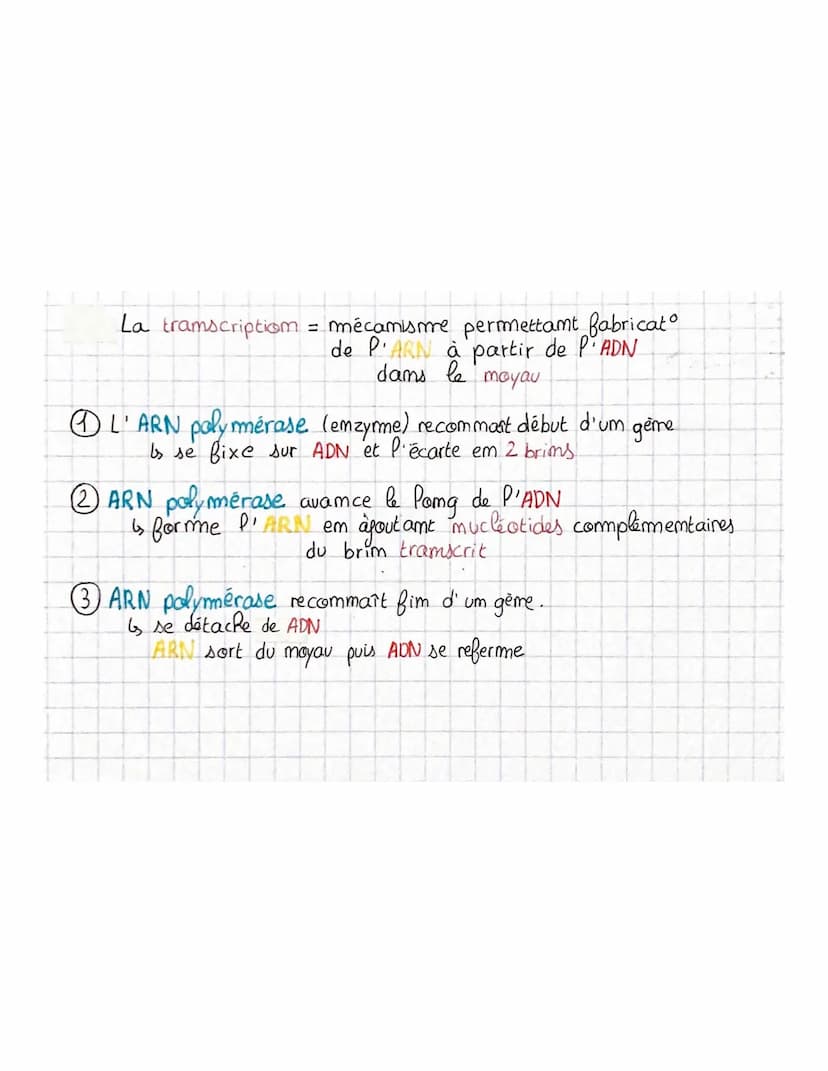 La transcription = mécanisme permettant fabricat°
de l'ARN à partir de l'ADN
dans le noyau
① L'ARN polymérase (enzyme) reconnaît début d'un gène
↳ se fixe sur ADN et l'écarte en 2 brins
② ARN polymérase avance le long de l'ADN
↳ forme l'ARN en ajoutant nucléotides complémentaires
du brin transcrit
③ ARN polymérase reconnaît fin d'un gène.
↳ se détache de ADN
ARN sort du noyau puis ADN se referme